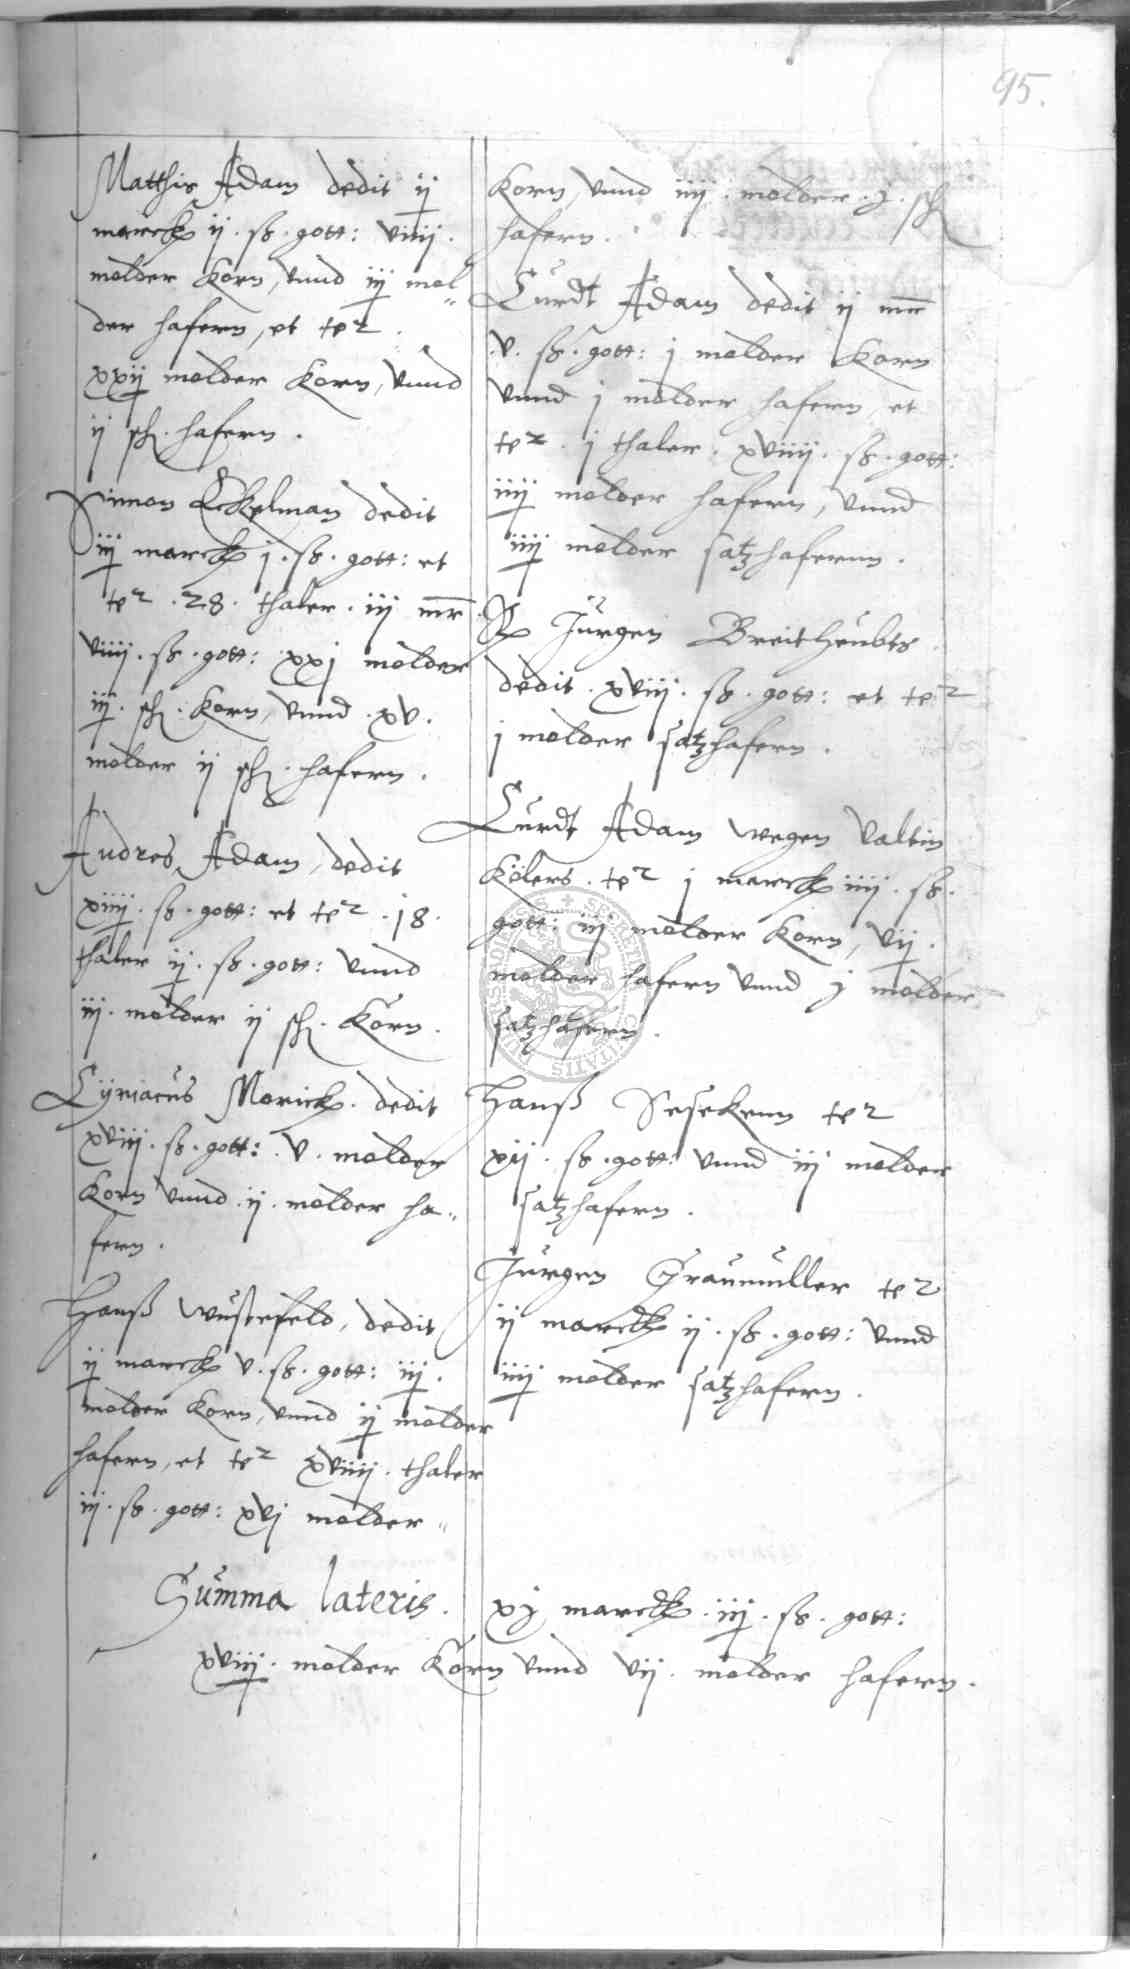 95.
Matthis Adam dedit ij
marck ij. ß. gott: viiij.
molder Korn, vnnd iij mol„
der hafern, et te2.
xxij molder Korn, vnnd
ij sch. hafern.
Simon Eckelman dedit
iij marck j. ß. gott: et
te2. 28. thaler. iij mr
viiij. ß. gott: xxj molder
iij. sch. Korn, vnnd. xv.
molder ij sch. hafern.
Andres Adam, dedit
xiiij. ß. gott: et te2. 18.
thaler ij. ß. gott: vnnd
iij. molder ij sch. Korn.
Cÿriacus Morick. dedit
xviij. ß. gott: v. molder
Korn vnnd. ij. molder ha„
fern.
Hanß Wustefeld, dedit
ij marck v. ß. gott: iij.
molder Korn, vnnd ij molder
hafern, et te2 xviiij. thaler
iij. ß. gott: xvj molder„
Korn, vnnd iiij. molder. j. sch
hafern.
Curdt Adam dedit ij mr
v. ß. gott: j molder Korn
vnnd j molder hafern, et
te2. j thaler. xviiij. ß. gott:
iiij molder hafern, vnnd
iiij molder satzhafernn.
Jurgen Breitheubts
dedit. xviij. ß. gott: et te2
j molder satzhafern.
Curdt Adam wegen Valtin
Kölers. te2 j marck iiij. ß.
gott: iij molder Korn, vij.
molder hafern vnnd j molder
satzhafern.
Hanß Sesekenn te2
xij. ß. gott: vnnd iij molder
satzhafern.
Jurgen Graumuller te2
ij marck ij. ß. gott: vnnd
iiij molder satzhafern.
Summa lateris. xj marck. iij. ß. gott:
xviij. molder Korn vnnd vij. molder hafern.